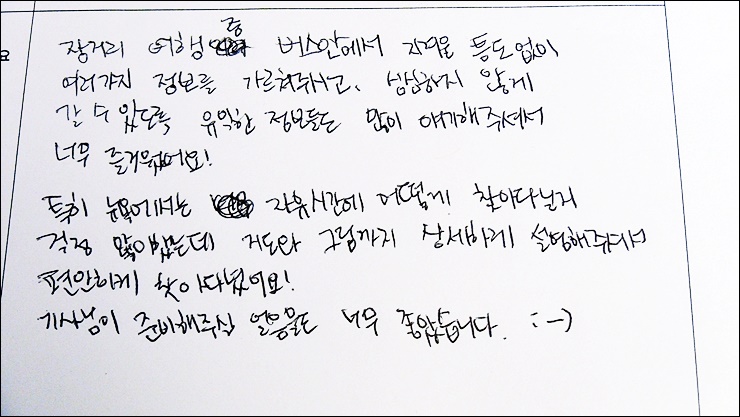 장거리 여행 중 버스안에서 지역을 틈도없이
여러가지 정보를 가르쳐주시고, 심심하지 않게
갈 수 있도록 유익한 정보들도 많이 얘기해주셔서
너무 즐거웠어요!
특히 뉴욕에서는 자유시간에 어떻게 찾아다닐지
걱정 많이했는데 지도와 그림까지 상세하게 설명해주셔서
편안하게 찾아다녔어요!
기사님이 준비해주신 얼음물도 너무 좋았습니다. :-)